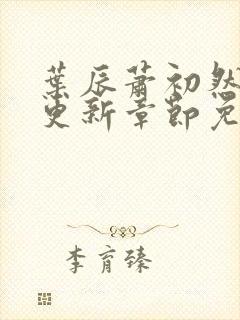 葉辰蕭初然
更新章節免
李育臻